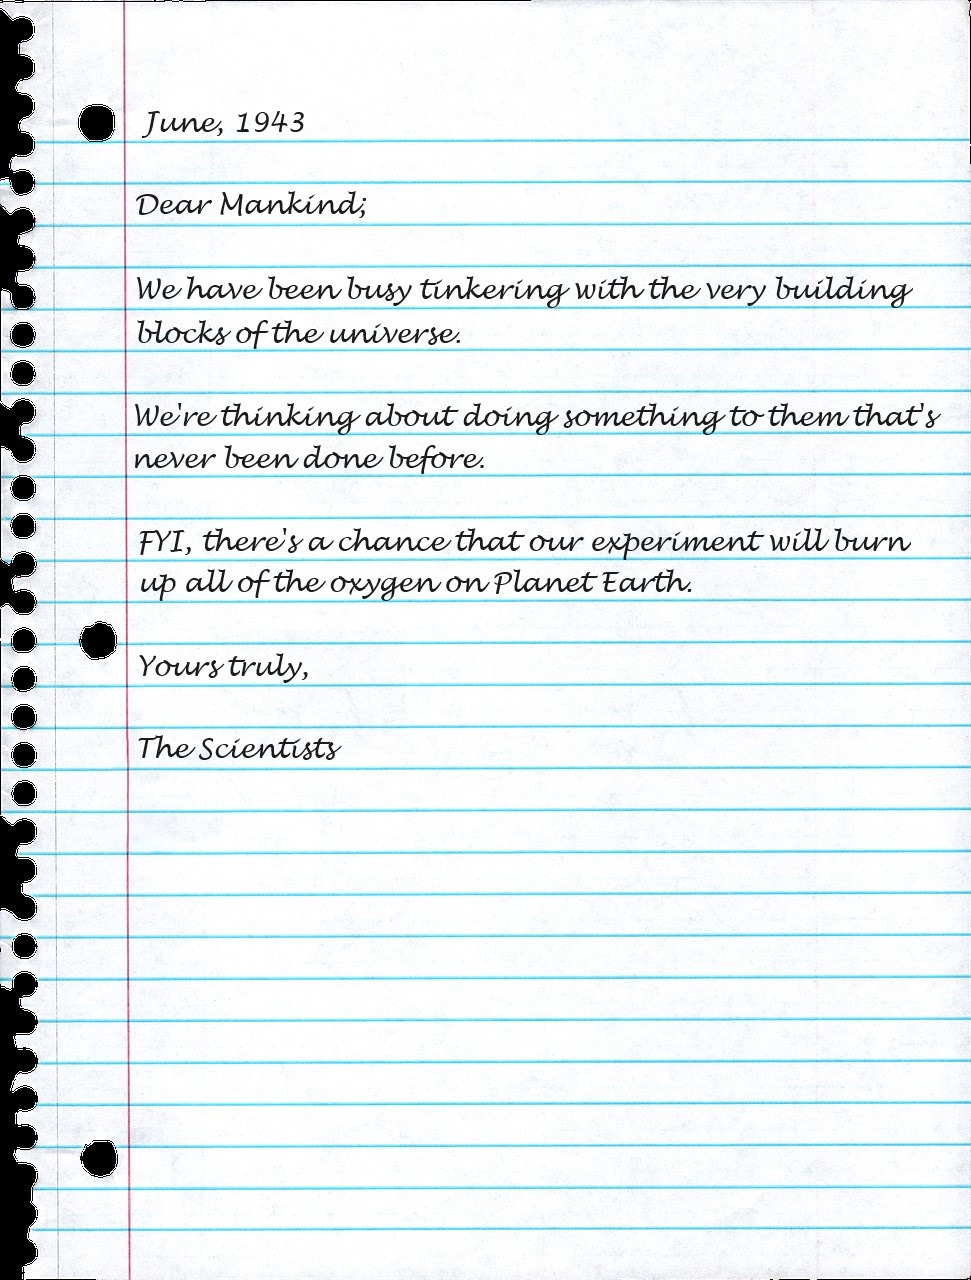 June, 1943
Dear Mankind;
We have been busy tinkering with the very building
blocks of the universe.
We're thinking about doing something to them that's
never been done before.
FYI, there's a chance that our experiment will burn
up all of the oxygen on Planet Earth.
Yours truly,
The Scientists